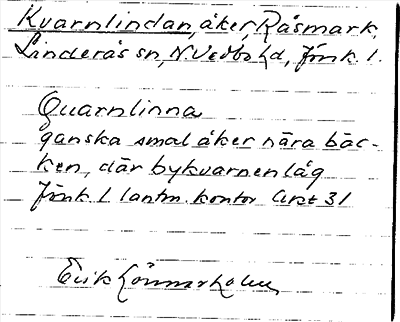 Kvarnlindan, åker, Råsmark,
Linderås sn, N Vedbo hd, Jönk. l.
Quarnlinna
ganska smal åker nära bäc-
ken, där bykvarnen låg
Jönk. l lantm. kontor Akt 31
Erik Lönnerholm